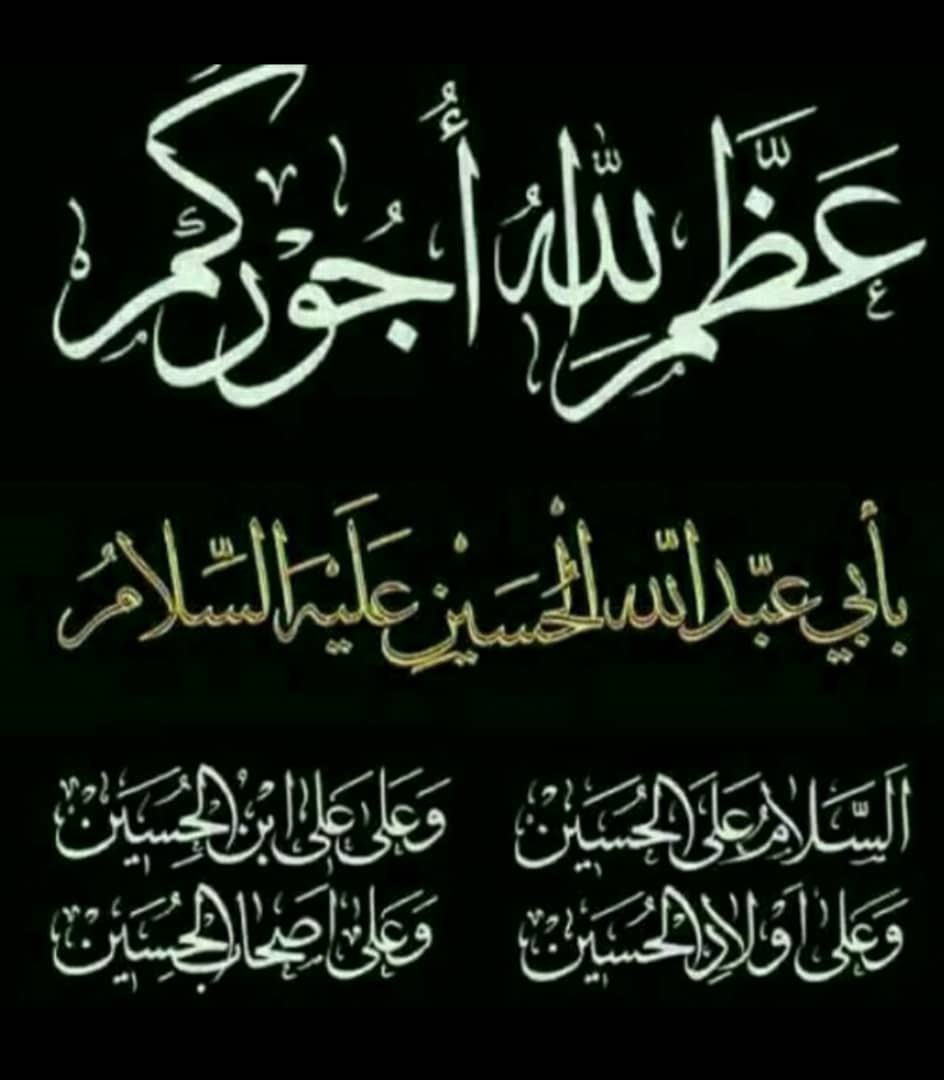 عَظَّمَ اللّٰهُ أُجُورَكُم
بأبي عبد اللّه الحُسين عَليه السّلامُ
اَلسَّلامُ عَلَى الحُسَين وَعَلى عَلي ابنِ الحُسَين
وَعَلى اَوْلادِ الحُسَين وَعَلى اَصحابِ الحُسَين